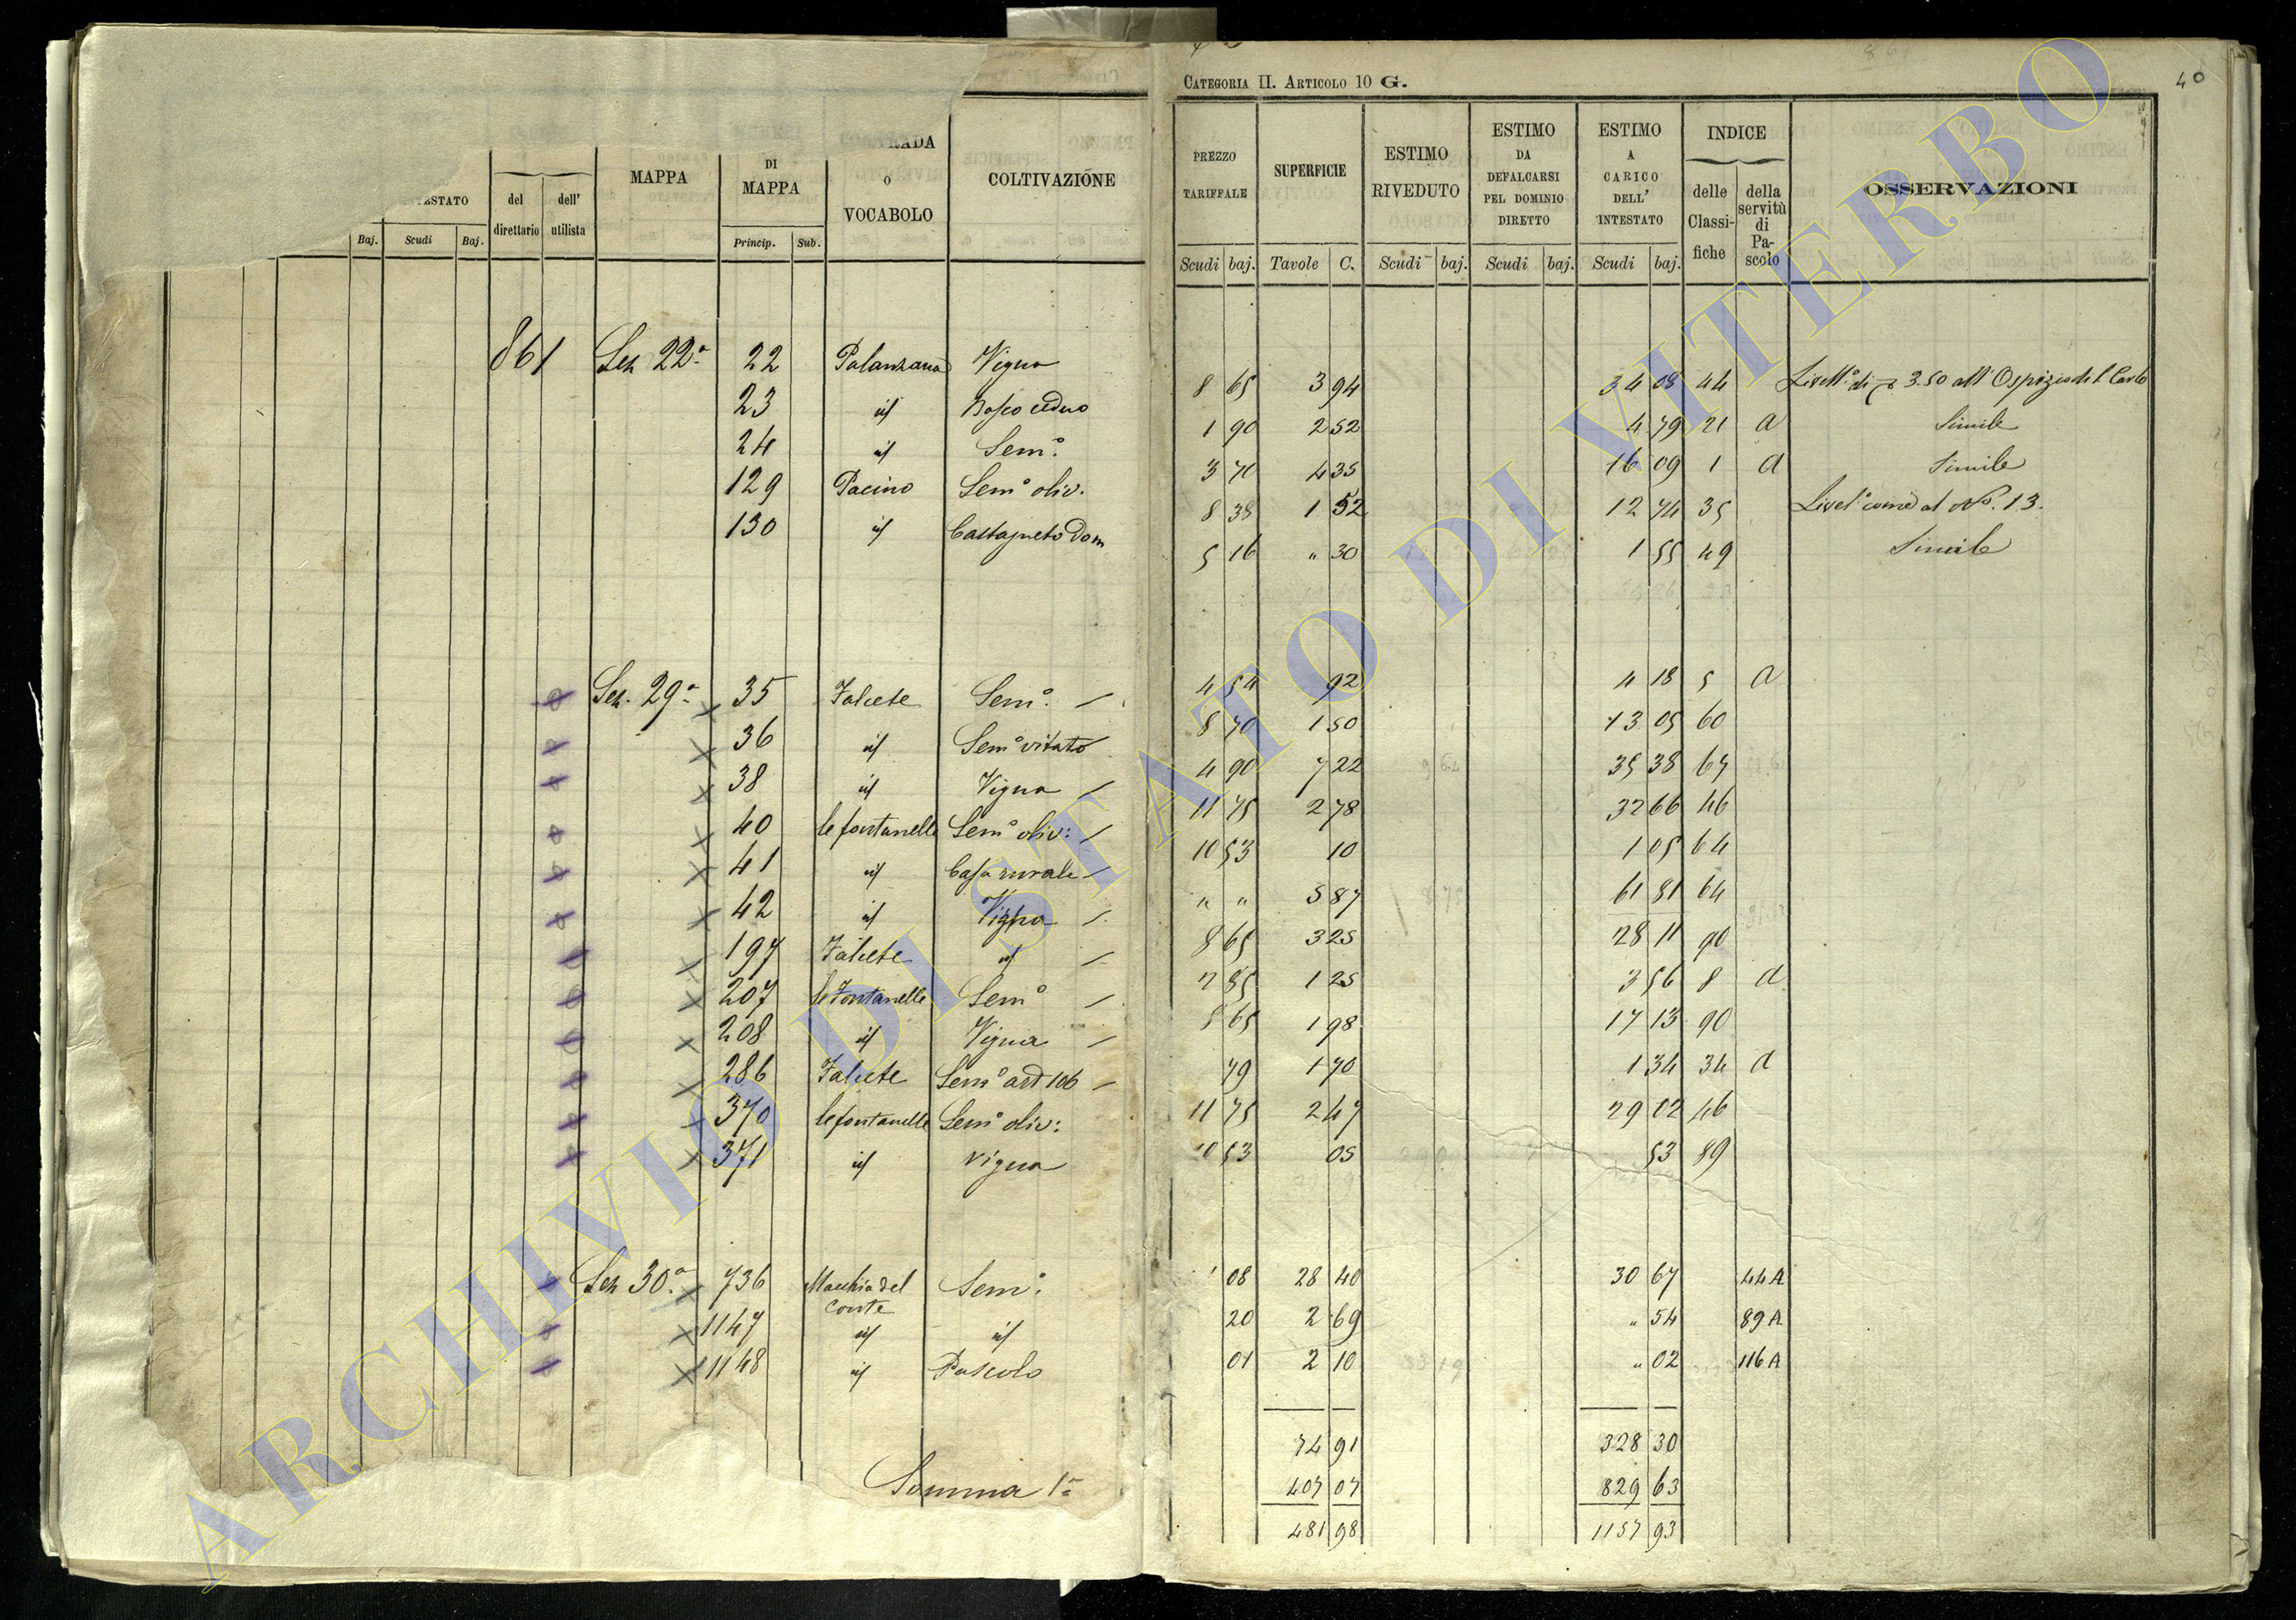 CATEGORIA II. ARTICOLO 10 G.
40
RADA
MAPPA
DI
MAPPA
o
VOCABOLO
COLTIVAZIONE
TESTATO
del
direttario
dell'
utilista
Baj. Scudi Baj.
Princip. Sub.
PREZZO
TARIFFALE
SUPERFICIE
ESTIMO
RIVEDUTO
ESTIMO
DA
DEFALCARSI
PEL DOMINIO
DIRETTO
ESTIMO
A
CARICO
DELL'
INTESTATO
INDICE
delle
Classi-
fiche
della
servitù
di
Pa-
scolo
OSSERVAZIONI
Scudi baj. Tavole C. Scudi baj. Scudi baj. Scudi baj.
861 Sez 22ª 22 Palanzana Vigna
23 id Bosco ceduo
24 id Sem°:
129 Pacino Sem° oliv.
130 id Castagneto Dom
Sez. 29ª 35 Falcete Sem°.
36 id Sem° vitato
38 id Vigna
40 le fontanelle Sem° oliv:
41 id Casa rurale
42 id Vigna
197 Falcete id
207 le Fontanelle Sem°
208 id Vigna
286 Falcete Sem° art 106
370 le fontanelle Sem° oliv:
371 id Vigna
Sez 30ª 736 Macchia del Sem°:
Conte
1147 id id
1148 id Pascolo
Somma 1ª
8 65 3 94 34 08 44 3.50 all' Ospizio di S. Carlo
1 90 2 52 4 79 21 a Simile
3 70 4 35 16 09 1 a Simile
8 38 1 52 12 74 35 Livel° come al N°. 13.
5 16 " 30 1 55 49 Simile
4 54 92 4 18 5 a
8 70 1 50 13 05 60
4 90 7 22 35 38 67
11 75 2 78 32 66 46
10 53 10 1 05 64
" " 5 87 61 81 64
8 65 3 25 28 11 90
2 85 1 25 3 56 8 a
8 65 1 98 17 13 90
79 1 70 1 34 34 a
11 75 2 47 29 02 46
10 53 05 53 89
1 08 28 40 30 67 44 A
20 2 69 " 54 89 A
01 2 10 " 02 116 A
74 91 328 30
407 07 829 63
481 98 1157 93
ARCHIVIO DI STATO DI VITERBO